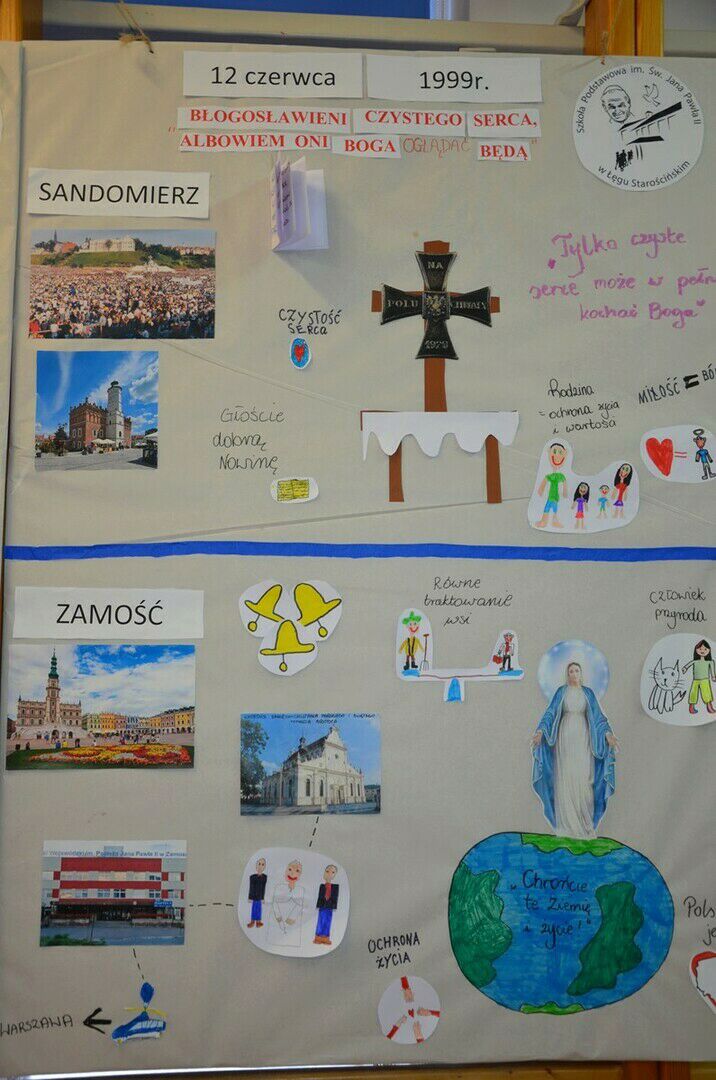 12 czerwca 1999r.
„BŁOGOSŁAWIENI CZYSTEGO SERCA,
ALBOWIEM ONI BOGA OGLĄDAĆ BĘDĄ"
Szkoła Podstawowa im. Św. Jana Pawła II
w Łęgu Starościńskim
SANDOMIERZ
„Tylko czyste
serce może w pełni
kochać Boga"
NA
POLU CHWAŁY
CZYSTOŚĆ
SERCA
Głoście
dobrą
Nowinę
Rodzina
- ochrona życia
i wartości
MIŁOŚĆ =
ZAMOŚĆ
Równe
traktowanie
wsi
Człowiek
przyroda
Jana Pawła II w
„Chrońcie
tę Ziemię
i życie!"
OCHRONA
ŻYCIA
WARSZAWA